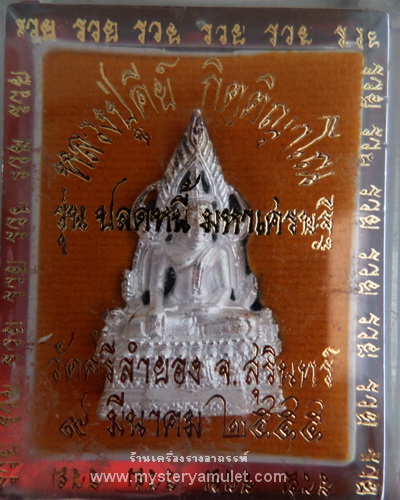 รวย รวย รวย รวย รวย รวย
หลวงปู่คีย์ กิตฺติญาโณ
รุ่น ปลดหนี้ มหาเศรษฐี
วัดศรีลำยอง จ.สุรินทร์
๙ มีนาคม ๒๕๕๕
ร้านเครื่องรางอาถรรพ์
www.mysteryamulet.com